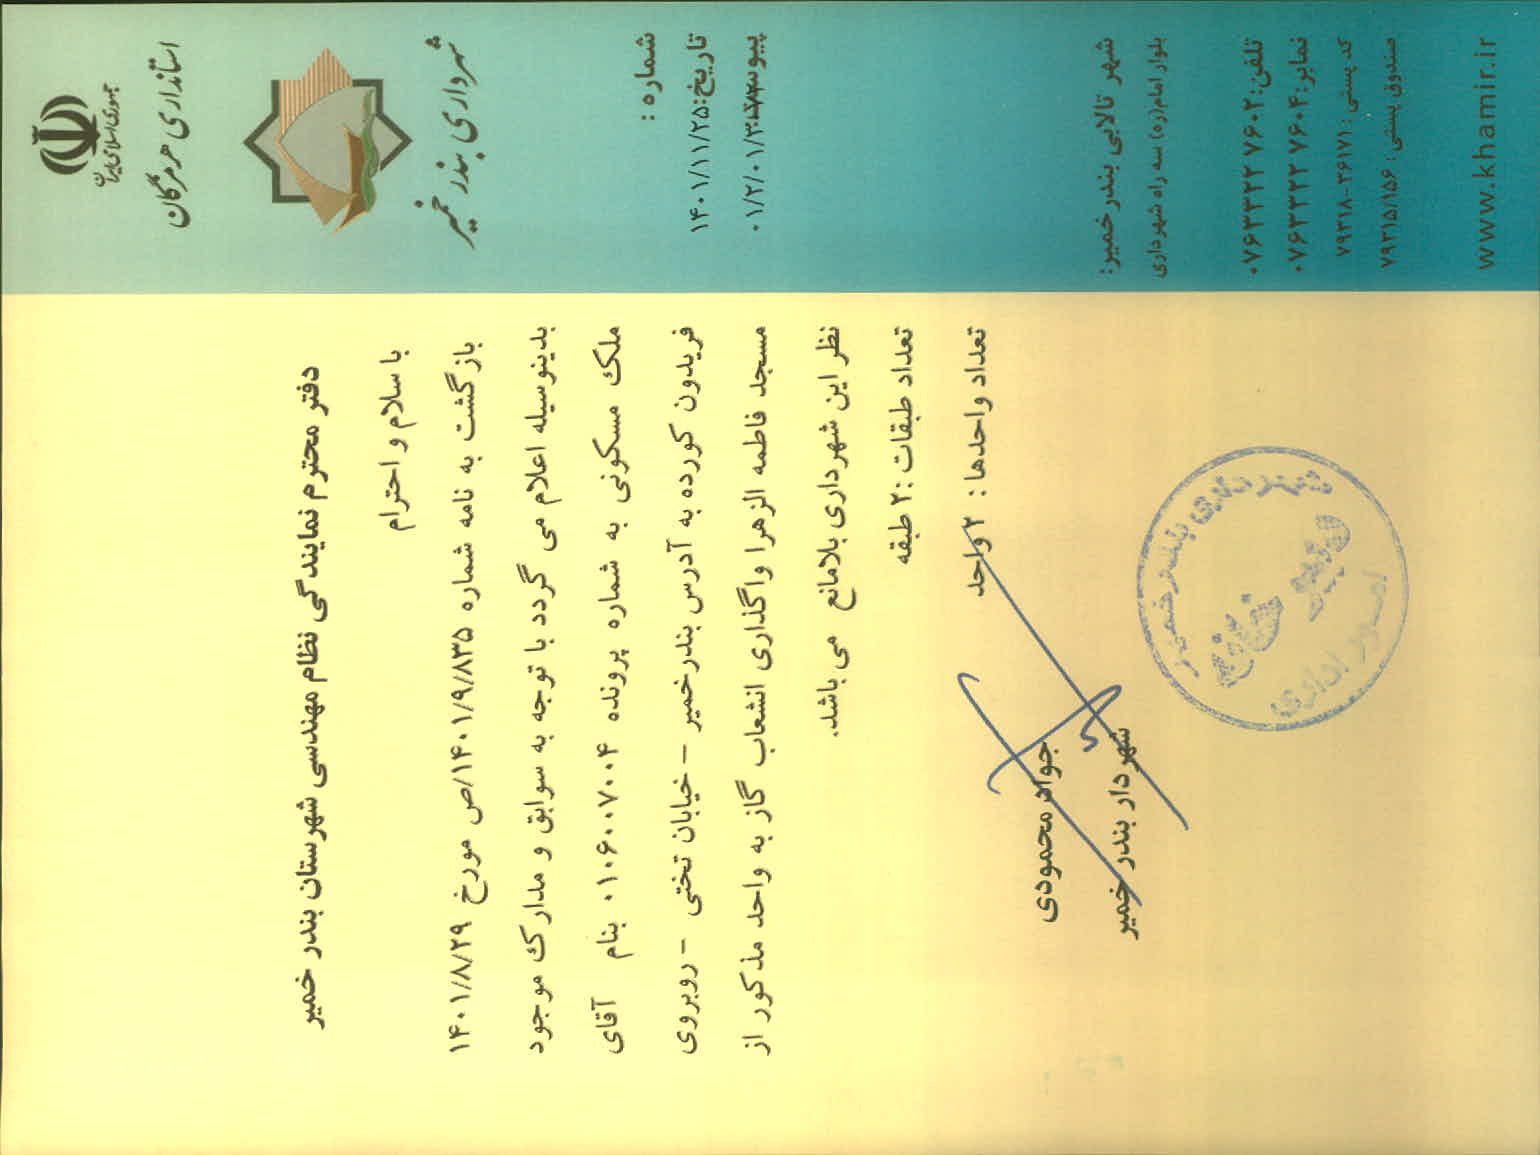 جمهوری اسلامی ایران
استانداری هرمزگان
شهرداری بندر خمیر
شماره :
تاریخ:۱۴۰۱/۱۱/۲۵
پیوست:
شهر تالابی بندر خمیر:
بلوار امام(ره) سه راه شهرداری
تلفن: ۰۷۶۳۳۲۲ ۷۶۰۲
نمابر: ۰۷۶۳۳۲۲ ۷۶۰۴
کد پستی : ۷۹۳۱۸-۳۶۱۷۱
صندوق پستی : ۷۹۳۱۵/۱۵۶
www.khamir.ir
دفتر محترم نمایندگی نظام مهندسی شهرستان بندر خمیر
با سلام و احترام
بازگشت به نامه شماره ۱۴۰۱/۹/۸۳۵/ص مورخ ۱۴۰۱/۸/۲۹
بدینوسیله اعلام می گردد با توجه به سوابق و مدارک موجود
ملک مسکونی به شماره پرونده ۰۱۰۶۰۰۷۰۰۴ بنام آقای
فریدون کورده به آدرس بندرخمیر – خیابان تختی – روبروی
مسجد فاطمه الزهرا واگذاری انشعاب گاز به واحد مذکور از
نظر این شهرداری بلامانع می باشد.
تعداد طبقات :۲ طبقه
تعداد واحدها : ۲ واحد
جواد محمودی
شهردار بندر خمیر
شهرداری بندر خمیر
دبیرخانه
امور اداری